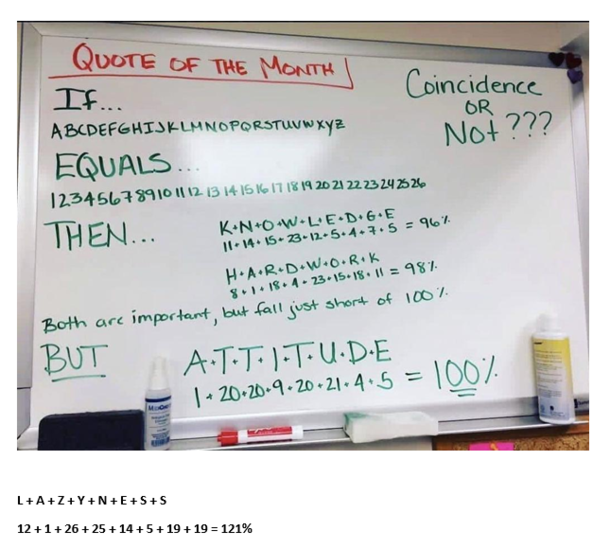 QUOTE OF THE MONTH
Coincidence
OR
Not ???
If...
ABCDEFGHIJKLMNOPQRSTUVWXYZ
EQUALS...
1 2 3 4 5 6 7 8 9 10 11 12 13 14 15 16 17 18 19 20 21 22 23 24 25 26
THEN...
K+N+O+W+L+E+D+G+E
11+14+15+23+12+5+4+7+5 = 96%
H+A+R+D+W+O+R+K
8+1+18+4+23+15+18+11 = 98%
Both are important, but fall just short of 100%.
BUT
A+T+T+I+T+U+D+E
1+20+20+9+20+21+4+5 = 100%
L + A + Z + Y + N + E + S + S
12 + 1 + 26 + 25 + 14 + 5 + 19 + 19 = 121%